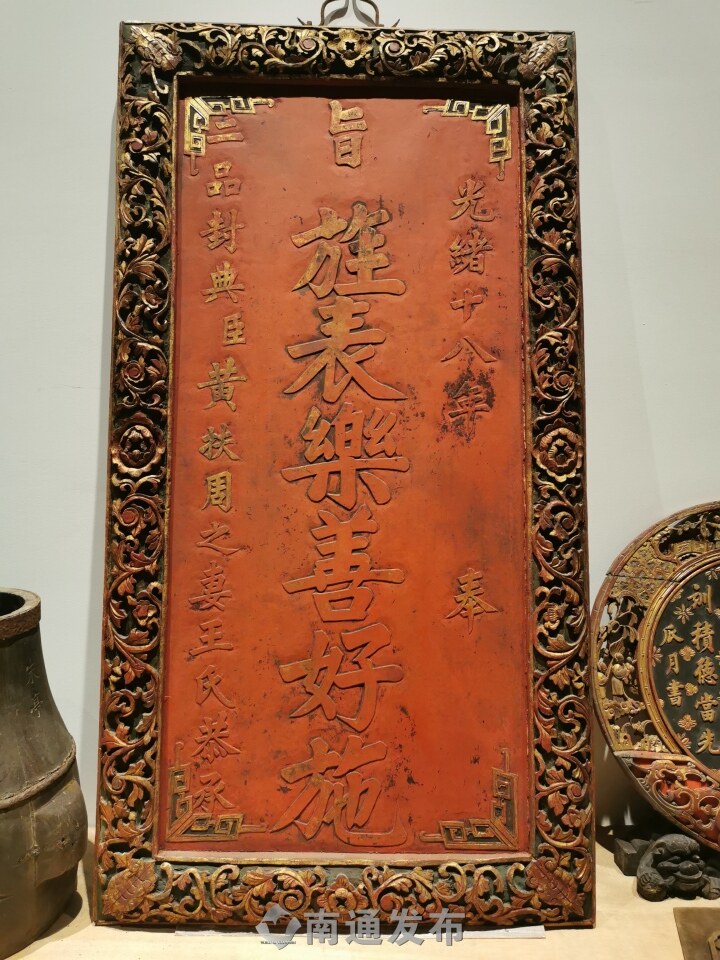 光緒十八年 奉
旨旌表樂善好施
三品封典臣黃扶周之妻王氏恭承
訓積德當先
瓜月書
南通发布